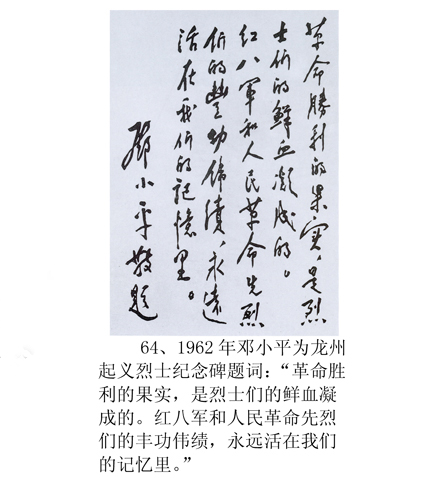 革命勝利的果实，是烈
士们的鲜血凝成的。
红八軍和人民革命先烈
们的豐功偉績，永远
活在我们的記憶里。
邓小平敬题
64、1962年邓小平为龙州
起义烈士纪念碑题词：“革命胜
利的果实，是烈士们的鲜血凝
成的。红八军和人民革命先烈
们的丰功伟绩，永远活在我们
的记忆里。”